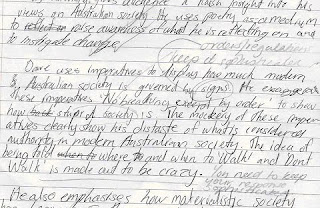 audience a much insight into his
views on Australian society by uses poetry as a medium
to reflect on raise awareness of what he's reflecting on and
to instigate change.
orders/regulations
keep a
Dawe uses imperatives to display how much modern
Australian society is governed by signs. He
these imperatives 'No breathing except by order' to show
how stupid society is. The mockery of these imper-
atives clearly show his distaste of what is considered
authority in modern Australian society. The idea of
being told when to where to and when to Walk and Dont
Walk is made out to be crazy. You need to keep
your response
He also emphasises how materialistic society